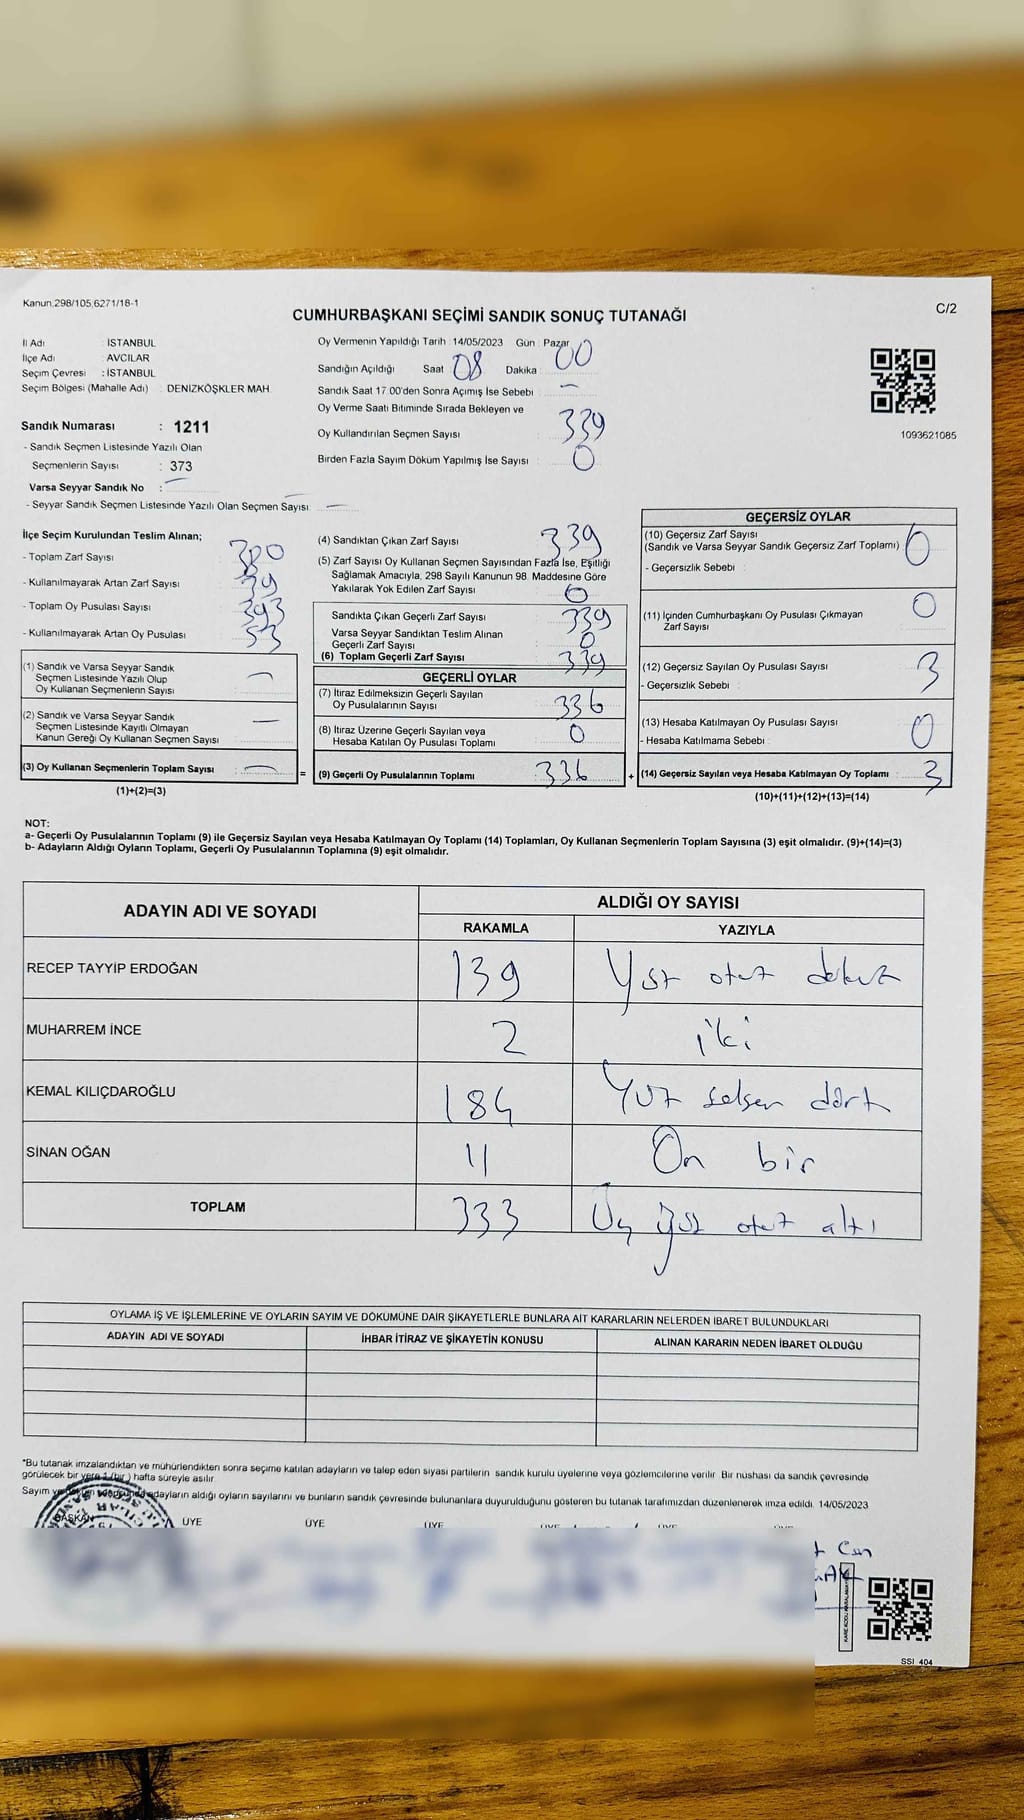 Kanun.298/105,6271/18-1
C/2
CUMHURBAŞKANI SEÇİMİ SANDIK SONUÇ TUTANAĞI
İl Adı : İSTANBUL
İlçe Adı : AVCILAR
Seçim Çevresi : İSTANBUL
Seçim Bölgesi (Mahalle Adı) : DENİZKÖŞKLER MAH.
Sandık Numarası : 1211
- Sandık Seçmen Listesinde Yazılı Olan
Seçmenlerin Sayısı : 373
Varsa Seyyar Sandık No : —
- Seyyar Sandık Seçmen Listesinde Yazılı Olan Seçmen Sayısı: —
Oy Vermenin Yapıldığı Tarih : 14/05/2023 Gün : Pazar
Sandığın Açıldığı Saat 08 Dakika 00
Sandık Saat 17.00'den Sonra Açımış İse Sebebi : —
Oy Verme Saati Bitiminde Sırada Bekleyen ve
Oy Kullandırılan Seçmen Sayısı : 339
Birden Fazla Sayım Döküm Yapılmış İse Sayısı : 0
1093621085
İlçe Seçim Kurulundan Teslim Alınan;
- Toplam Zarf Sayısı : 380
- Kullanılmayarak Artan Zarf Sayısı : 39
- Toplam Oy Pusulası Sayısı : 393
- Kullanılmayarak Artan Oy Pusulası : 53
(1) Sandık ve Varsa Seyyar Sandık
Seçmen Listesinde Yazılı Olup
Oy Kullanan Seçmenlerin Sayısı : —
(2) Sandık ve Varsa Seyyar Sandık
Seçmen Listesinde Kayıtlı Olmayan
Kanun Gereği Oy Kullanan Seçmen Sayısı : —
(3) Oy Kullanan Seçmenlerin Toplam Sayısı : —
(1)+(2)=(3)
=
(4) Sandıktan Çıkan Zarf Sayısı : 339
(5) Zarf Sayısı Oy Kullanan Seçmen Sayısından Fazla İse, Eşitliği
Sağlamak Amacıyla, 298 Sayılı Kanunun 98. Maddesine Göre
Yakılarak Yok Edilen Zarf Sayısı : 0
Sandıkta Çıkan Geçerli Zarf Sayısı : 339
Varsa Seyyar Sandıktan Teslim Alınan
Geçerli Zarf Sayısı : 0
(6) Toplam Geçerli Zarf Sayısı : 339
GEÇERLİ OYLAR
(7) İtiraz Edilmeksizin Geçerli Sayılan
Oy Pusulalarının Sayısı : 336
(8) İtiraz Üzerine Geçerli Sayılan veya
Hesaba Katılan Oy Pusulası Toplamı : 0
(9) Geçerli Oy Pusulalarının Toplamı : 336
+
GEÇERSİZ OYLAR
(10) Geçersiz Zarf Sayısı
(Sandık ve Varsa Seyyar Sandık Geçersiz Zarf Toplamı) 0
- Geçersizlik Sebebi :
(11) İçinden Cumhurbaşkanı Oy Pusulası Çıkmayan
Zarf Sayısı 0
(12) Geçersiz Sayılan Oy Pusulası Sayısı : 3
- Geçersizlik Sebebi :
(13) Hesaba Katılmayan Oy Pusulası Sayısı : 0
- Hesaba Katılmama Sebebi :
(14) Geçersiz Sayılan veya Hesaba Katılmayan Oy Toplamı : 3
(10)+(11)+(12)+(13)=(14)
NOT:
a- Geçerli Oy Pusulalarının Toplamı (9) ile Geçersiz Sayılan veya Hesaba Katılmayan Oy Toplamı (14) Toplamları, Oy Kullanan Seçmenlerin Toplam Sayısına (3) eşit olmalıdır. (9)+(14)=(3)
b- Adayların Aldığı Oyların Toplamı, Geçerli Oy Pusulalarının Toplamına (9) eşit olmalıdır.
ADAYIN ADI VE SOYADI
ALDIĞI OY SAYISI
RAKAMLA YAZIYLA
RECEP TAYYİP ERDOĞAN 139 Yüz otuz dokuz
MUHARREM İNCE 2 iki
KEMAL KILIÇDAROĞLU 184 Yüz seksen dört
SİNAN OĞAN 11 On bir
TOPLAM 333 Üç yüz otuz altı
OYLAMA İŞ VE İŞLEMLERİNE VE OYLARIN SAYIM VE DÖKÜMÜNE DAİR ŞİKAYETLERLE BUNLARA AİT KARARLARIN NELERDEN İBARET BULUNDUKLARI
ADAYIN ADI VE SOYADI İHBAR İTİRAZ VE ŞİKAYETİN KONUSU ALINAN KARARIN NEDEN İBARET OLDUĞU
*Bu tutanak imzalandıktan ve mühürlendikten sonra seçime katılan adayların ve talep eden siyasi partilerin sandık kurulu üyelerine veya gözlemcilerine verilir. Bir nushası da sandık çevresinde
görülecek bir yere 1 (bir) hafta süreyle asılır.
Sayım ve adayların aldığı oyların sayılarını ve bunların sandık çevresinde bulunanlara duyurulduğunu gösteren bu tutanak tarafımızdan düzenlenerek imza edildi. 14/05/2023
BAŞKAN ÜYE ÜYE ÜYE ÜYE ÜYE ÜYE
SSI 404